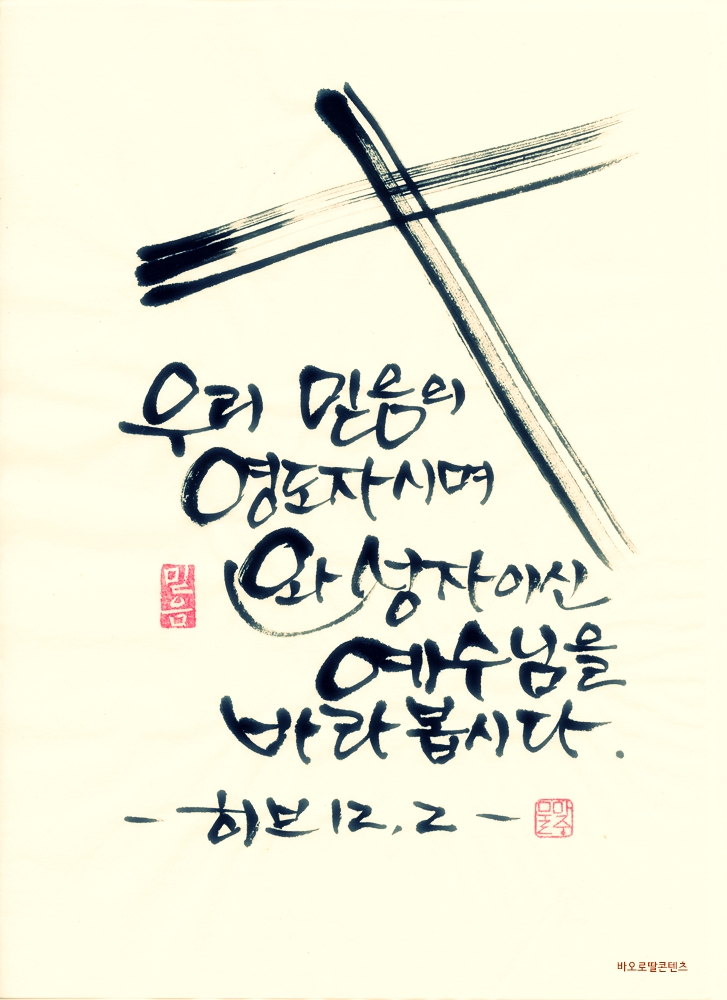 우리 믿음의
영도자시며
완성자이신
예수님을
바라봅시다.
믿음
- 히브 12, 2 -
바오로딸콘텐츠